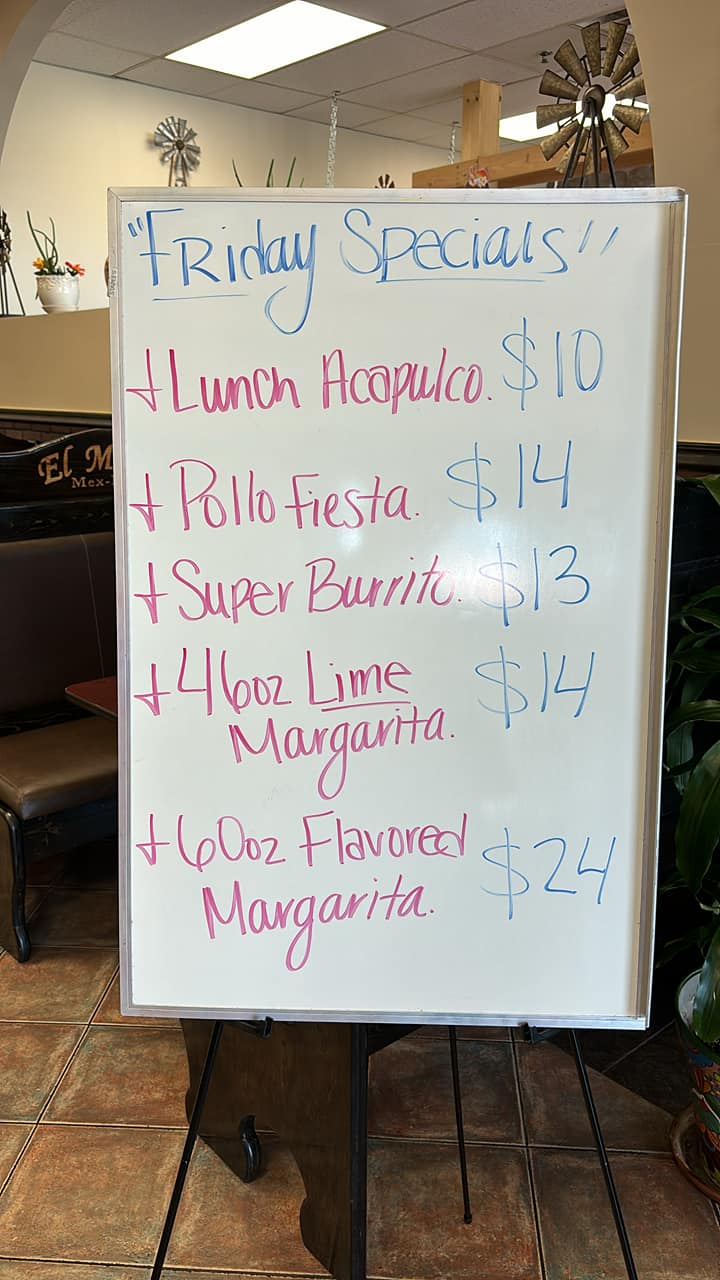 "Friday Specials"
+Lunch Acapulco. $10
+Pollo Fiesta. $14
+Super Burrito. $13
+46oz Lime $14
Margarita.
+60oz Flavored $24
Margarita.
El M
Mex-